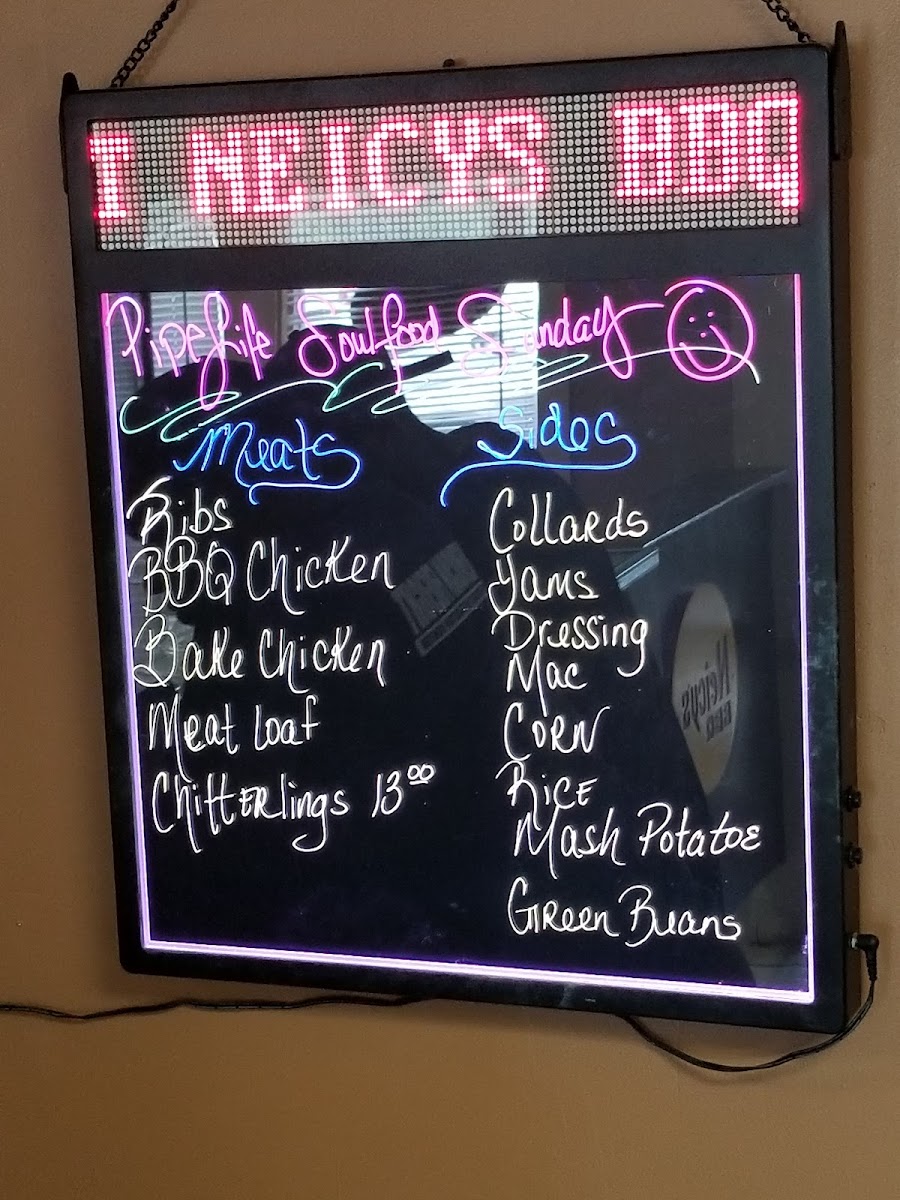 T NEICYS BBQ
PipeLife Soulfood Sunday
Meats
Ribs
BBQ Chicken
Bake Chicken
Meat loaf
Chitterlings 13⁰⁰
Sides
Collards
Yams
Dressing
Mac
Corn
Rice
Mash Potatoe
Green Beans
Neicy's
BBQ